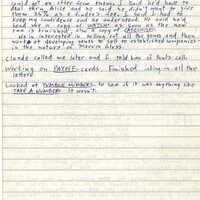 could get an offer from them, I said he'd have to
call them, Alice and he said he didn't want to give
them 35% as a finder's fee. I said I had to
keep my confidence and he understood. He said he'd
send me a copy of WATCH! as soon as the new
run is finished, also a copy of
He is interested in selling out all the games and then
work at developing games to sell to established companies
in the nature of Marvin Glass.
Claude called me later and I told him of Paul's call.
Working on PAYOFF cards. Finished inking in all the
letters!
Looked at TUMBLE NUMBERS to see if it was anything like
TAKE A NUMBER. It wasn't.